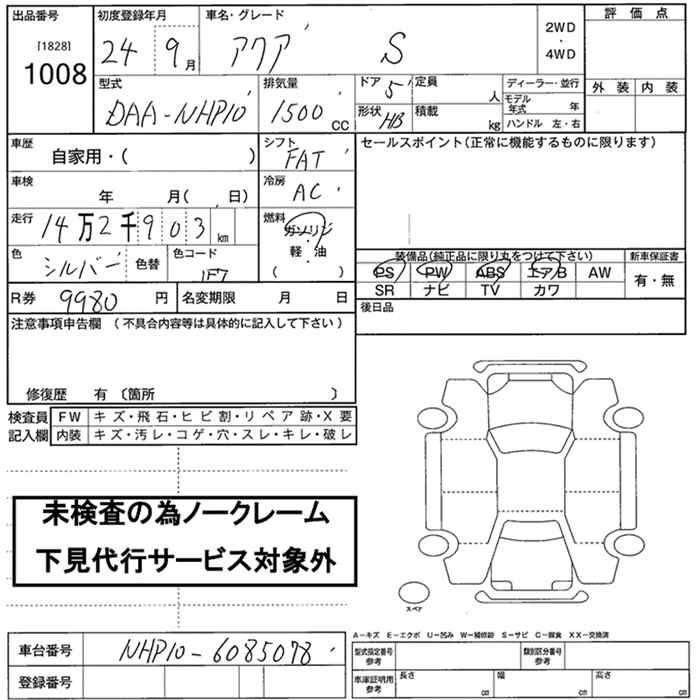 出品番号 初度登録年月 車名・グレード 評価点
[1828] 2WD
1008 24 9月 アクア S ・
4WD
型式 排気量 ドア 定員 ディーラー・並行 外装 内装
5 人 モデル年式 年
DAA-NHP10 1500 CC 形状 HB 積載 kg ハンドル 左・右
車歴 シフト セールスポイント(正常に機能するものに限ります)
自家用・( ) FAT
車検 冷房
年 月( 日) AC
走行 14万2千903km 燃料
ガソリン
色 シルバー 色替 色コード 1F7 軽・油
( )
装備品(純正品に限り丸をつけて下さい) 新車保証書
PS PW ABS エアB AW 有・無
SR ナビ TV カワ
R券 9980 円 名変期限 月 日 後日品
注意事項申告欄 (不具合内容等は具体的に記入して下さい)
修復歴 有 〔箇所 〕
検査員 FW キズ・飛石・ヒビ割・リペア跡・X要
記入欄 内装 キズ・汚レ・コゲ・穴・スレ・キレ・破レ
未検査の為ノークレーム
下見代行サービス対象外
スペア
A-キズ E-エクボ U-凹み W-補修跡 S-サビ C-腐食 XX-交換済
車台番号 NHP10-6085078 型式指定番号 参考 類別区分番号 参考
登録番号 車庫証明用 参考 長さ cm 幅 cm 高さ cm